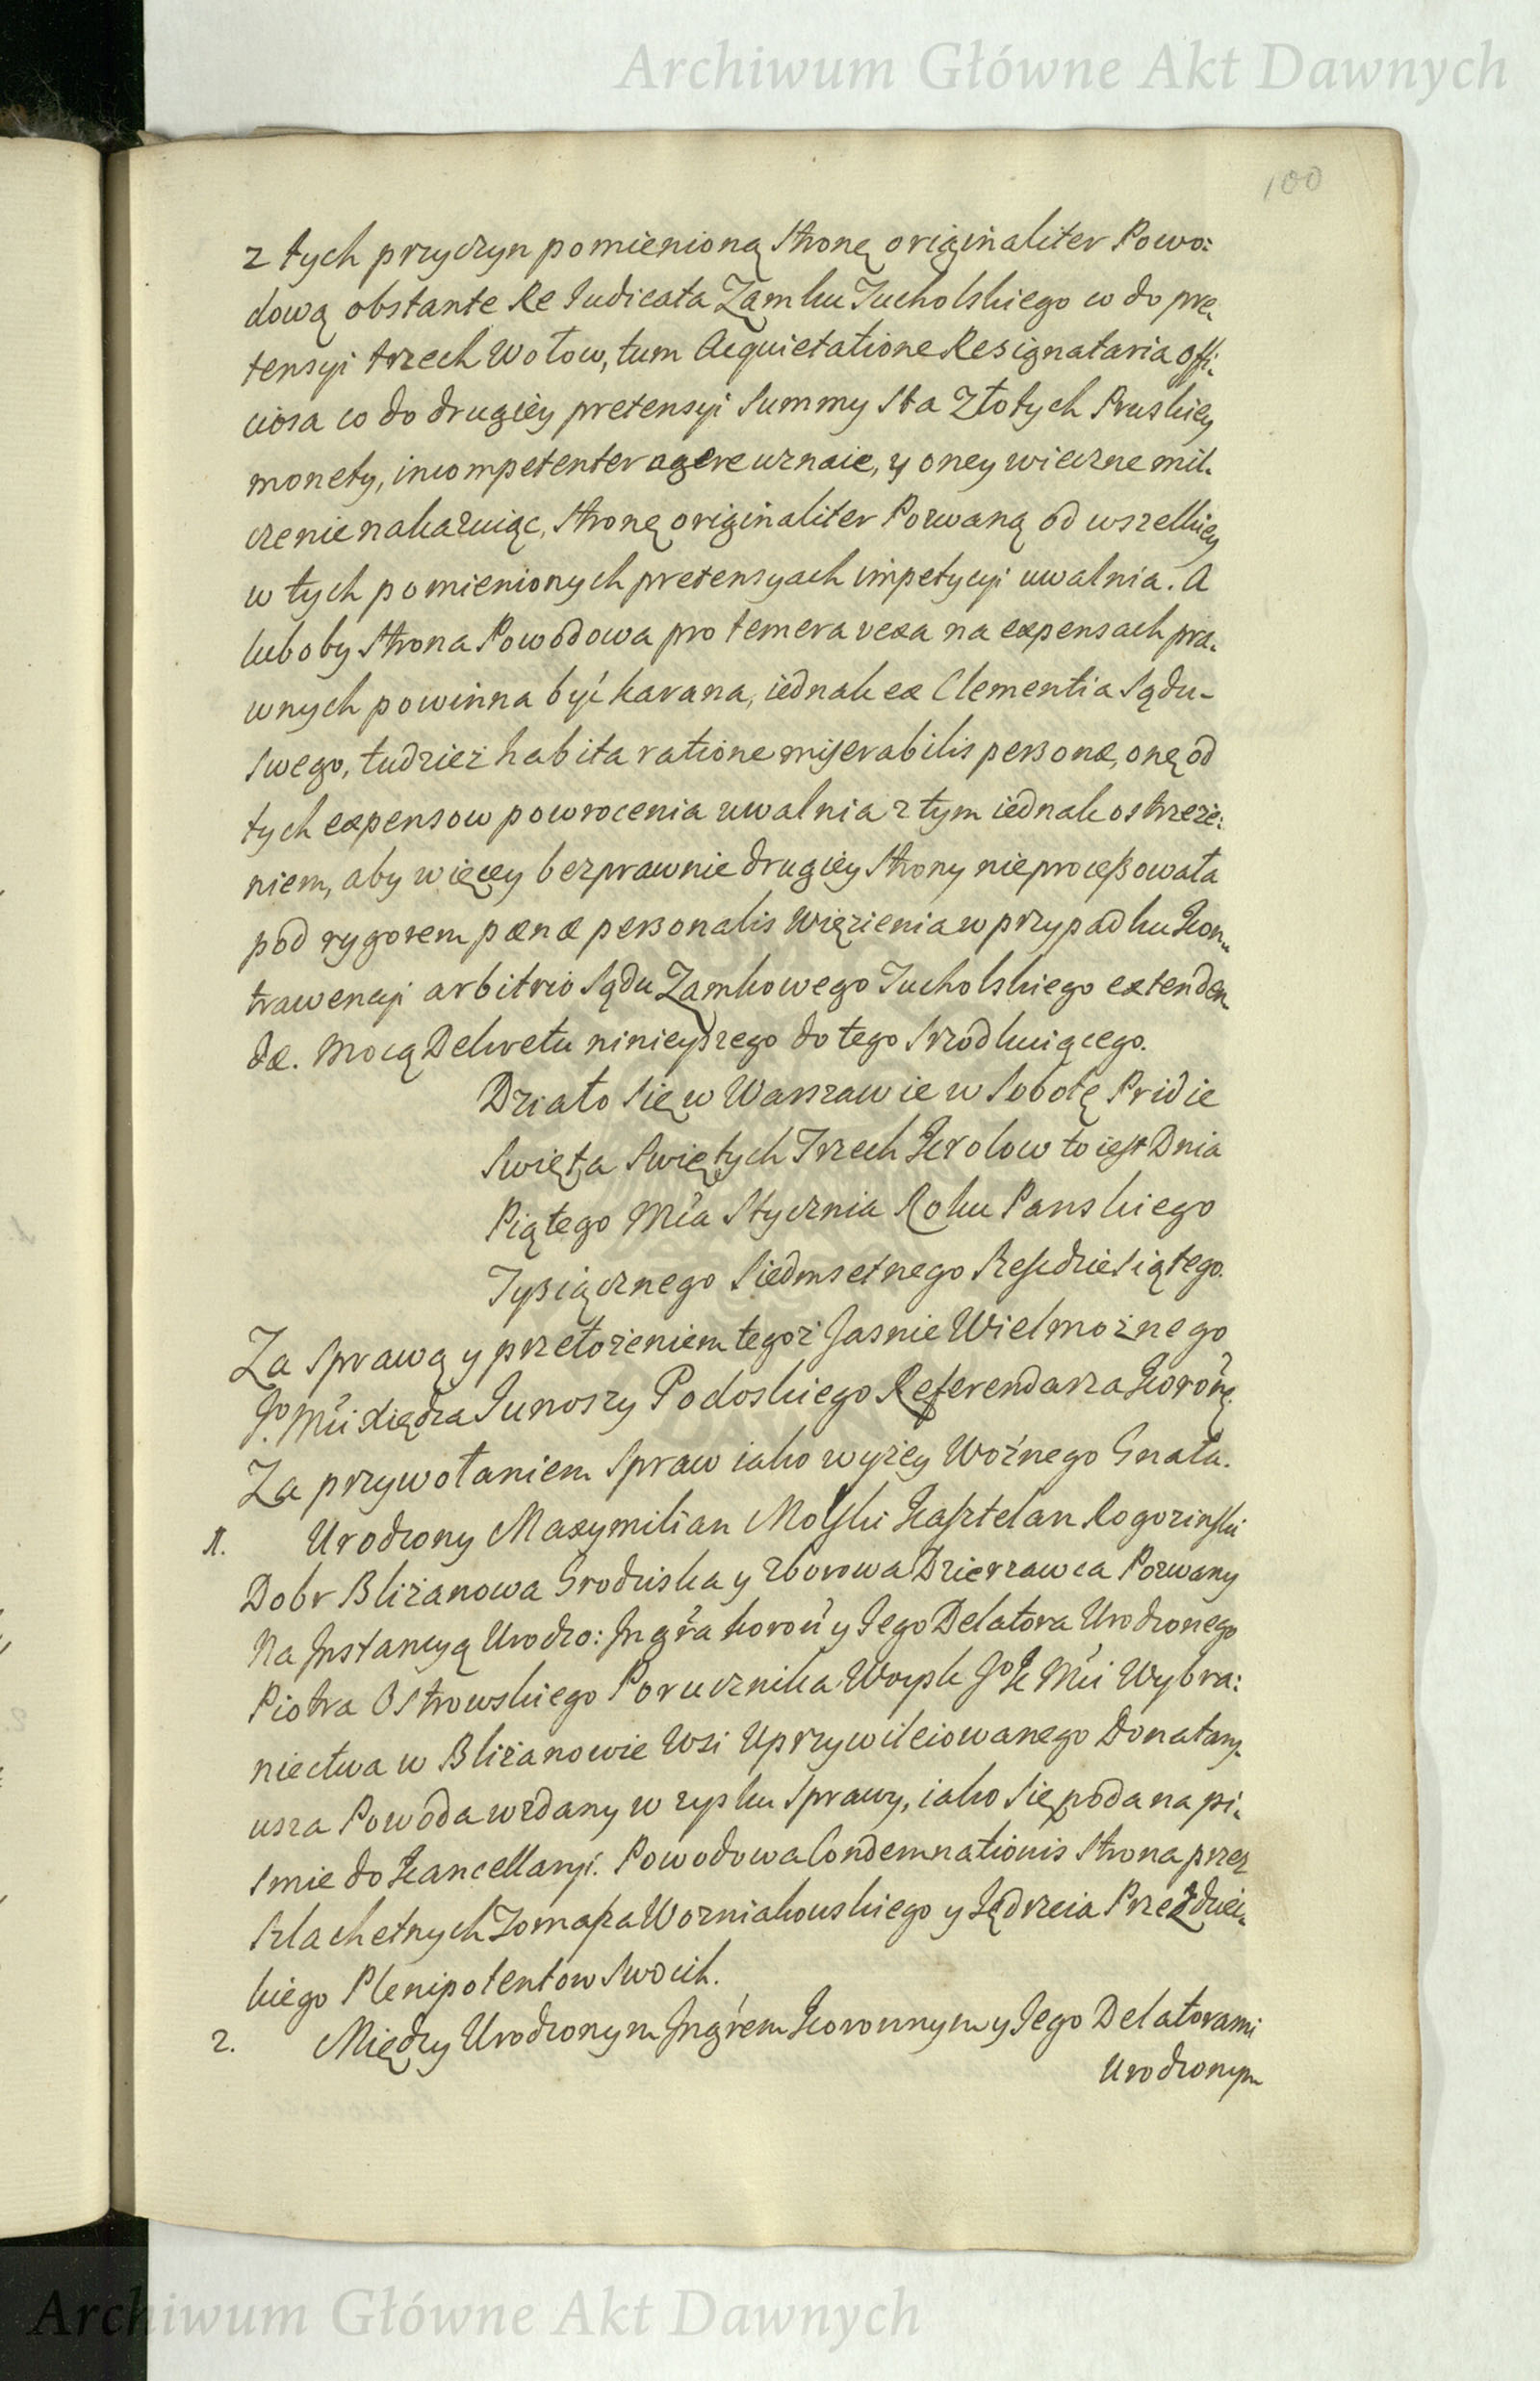 Archiwum Główne Akt Dawnych
100
z tych przyczyn pomienioną Stronę originaliter Powo:
dową obstante Re Iudicata Zamku Tucholskiego co do pre,
tensyi trzech Wołow, tum Acquietatione Resignataria offi,
ciosa co do drugiey pretensyi Summy Sta Złotych Pruskiey
monety, incompetenter agere uznaie, y oney wieczne mil,
czenie nakazuiąc, Stronę originaliter Pozwaną od wszelkiey
w tych pomienionych pretensyach impetycyi uwalnia. A
luboby Strona Powodowa pro temera vexa na expensach pra,
wnych powinna być karana, iednak ex Clementia Sądu-
Swego, tudzież habita ratione miserabilis personæ, onę od
tych expensow powrocenia uwalnia z tym iednak ostrzeże:
niem, aby więcey bezprawnie drugiey Strony nieprocessowała
pod rygorem pænæ personalis Więzienia w przypadku Kon,
trawencyi arbitrio Sądu Zamkowego Tucholskiego extenden
dæ. Mocą Dekretu ninieyszego do tego Srzodkuiącego.
Działo Się w Warszawie w Sobotę Pridie
Swięta Swiętych Trzech Krolow to iest Dnia
Piątego Mca Stycznia Roku Panskiego
Tysiącznego Siedmsetnego Szescdziesiątego.
Za Sprawą y przełożeniem tegoż Jasnie Wielmożnego
Jo. Mci Xiędza Junoszy Podoskiego Referendarza Koronę.
Za przywołaniem Spraw iako wyżey Woźnego Gnata.
1. Urodzony Maxymilian Molski Kasztelan Rogozinski
Dobr Bliżanowa Grodziska y Zborowa Dzierzawca Pozwany
Na Instancyą Urodzo: Ingra koroń y Jego Delatora Urodzonego
Piotra Ostrowskiego Porucznika Woysk Jo K Mci Wybra:
niectwa w Bliżanowie Wsi Uprzywileiowanego Donatary,
usza Powoda wzdany w zysku Sprawy, iako Się poda na pi,
Smie do Kancellaryi. Powodowa Condemnationis Strona przez
Szlachetnych Tomasza Wozniakowskiego y Jędrzeia Przeździec,
kiego Plenipotentow Swoich.
2. Między Urodzonym Ingrem Koronnym y Jego Delatorami
Urodzonym
Archiwum Główne Akt Dawnych